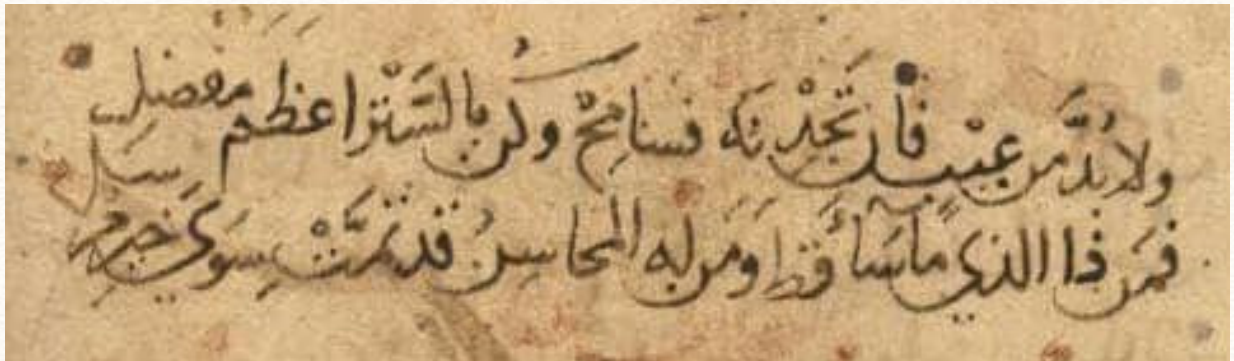 ولا بُدَّ من عَيْبٍ فأن تَجِدْنَه فسامِحْ وكُن بالسَّتْر اعظَم مفضِل
فَمَن ذا الذي ماسَآ قَط وَمَن له المحاسِنُ قد تمَّتْ سِوَي خير مرسل